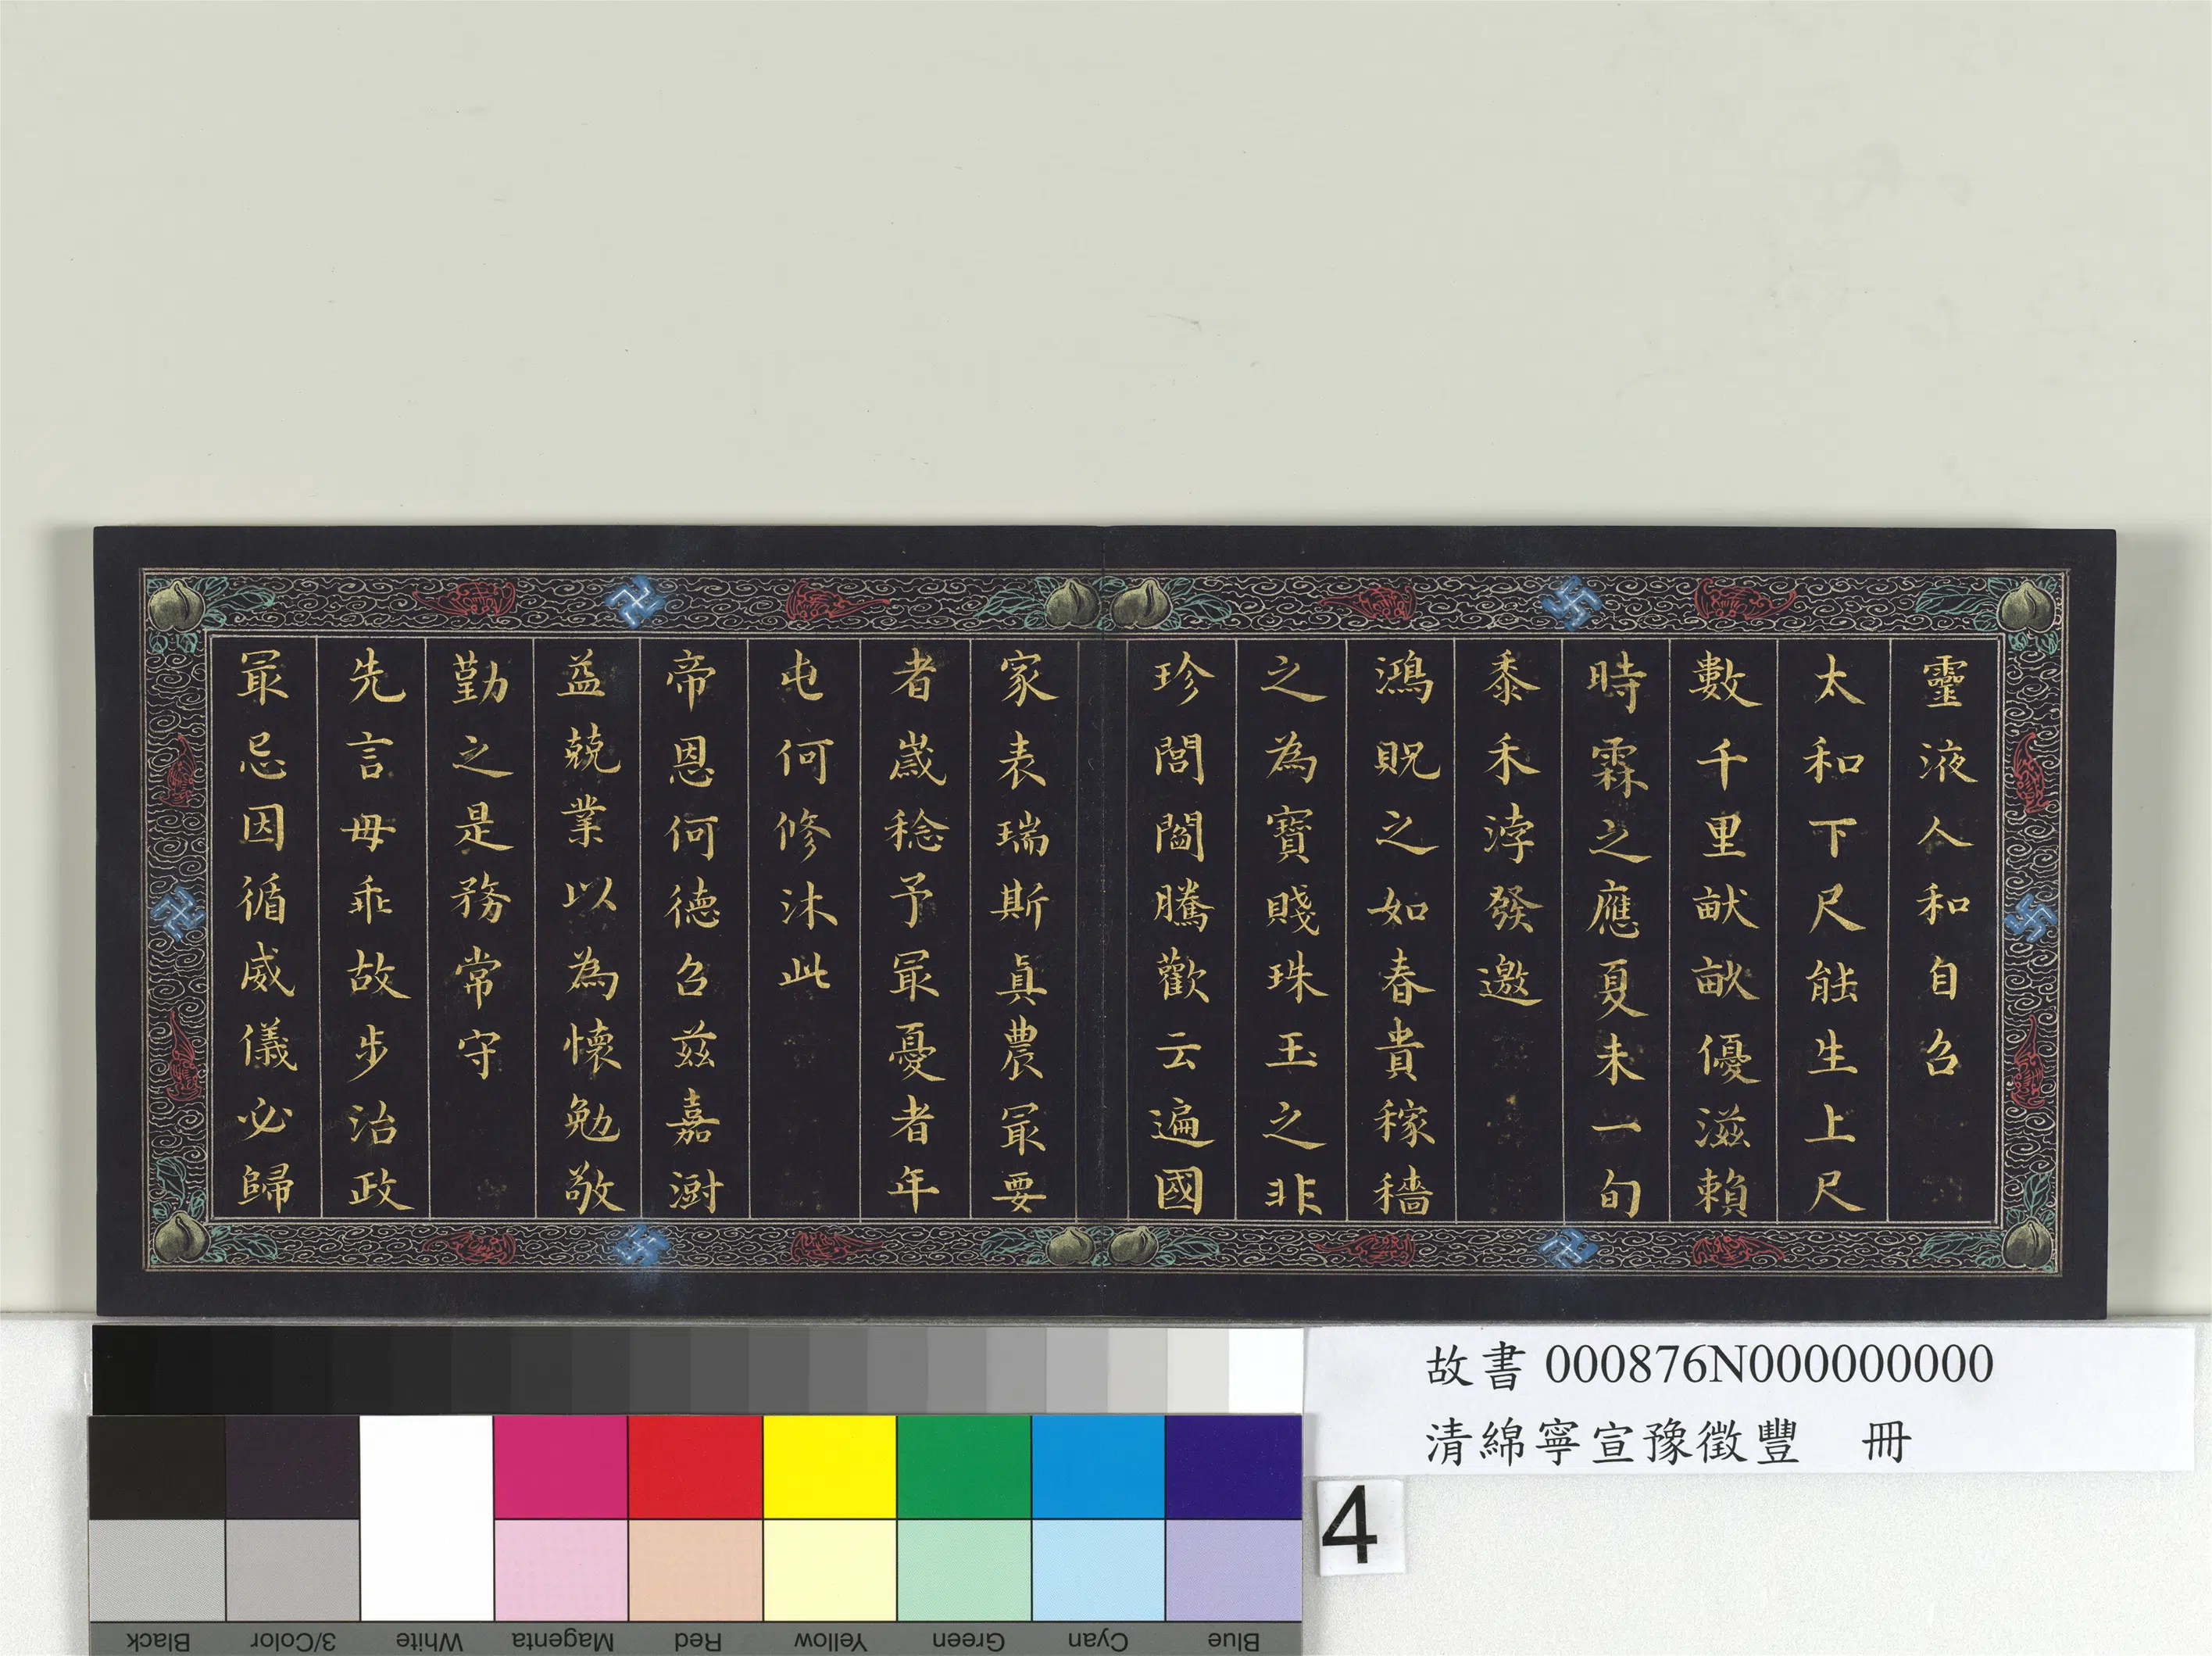 靈液人和自召
太和下尺能生上尺
數千里畎畝優滋賴
時霖之應夏未一旬
黍禾浡發邀
鴻貺之如春貴稼穡
之為寶賤珠玉之非
珍閭閻騰歡云遍國
家表瑞斯真農冣要
者歲稔予冣憂者年
屯何修沐此
帝恩何德召茲嘉澍
益兢業以為懷勉敬
勤之是務常守
先言毋乖故步治政
冣忌因循威儀必歸
故書 000876N000000000
清綿寧宣豫徵豐 冊
4
Black 3/Color White Magenta Red Yellow Green Cyan Blue